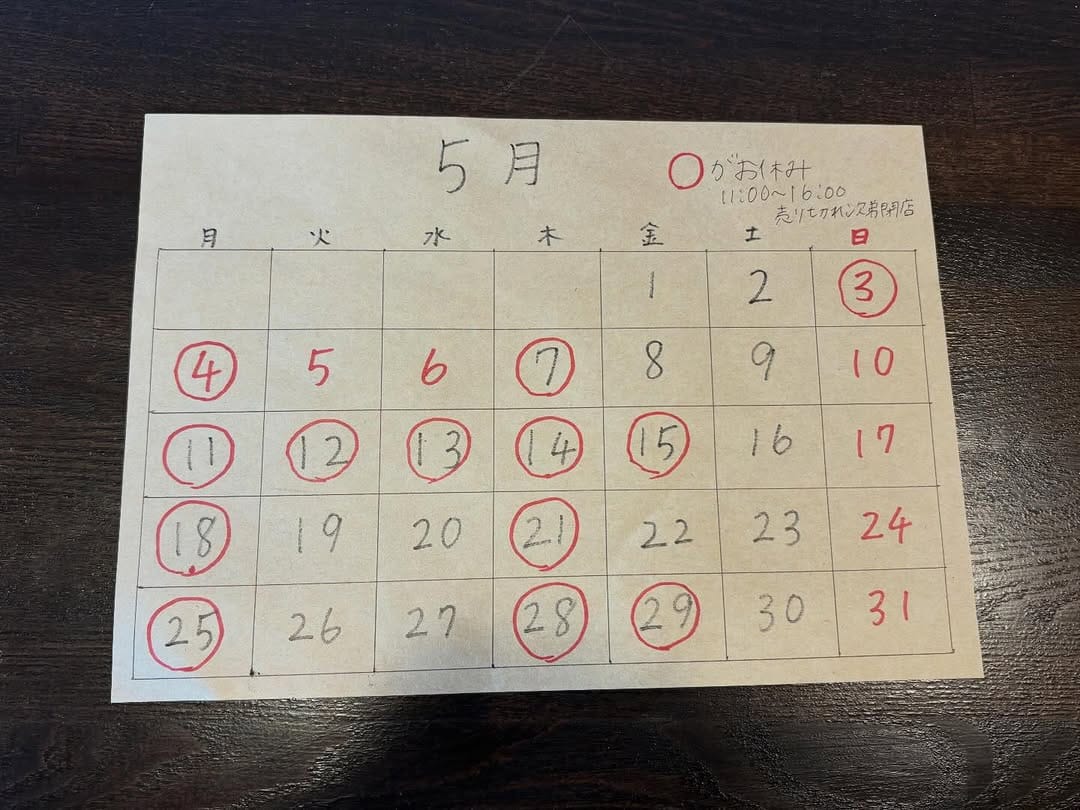 5月
○がお休み
11:00〜16:00
売り切れ次第閉店
月 火 水 木 金 土 日
1 2 3
4 5 6 7 8 9 10
11 12 13 14 15 16 17
18 19 20 21 22 23 24
25 26 27 28 29 30 31